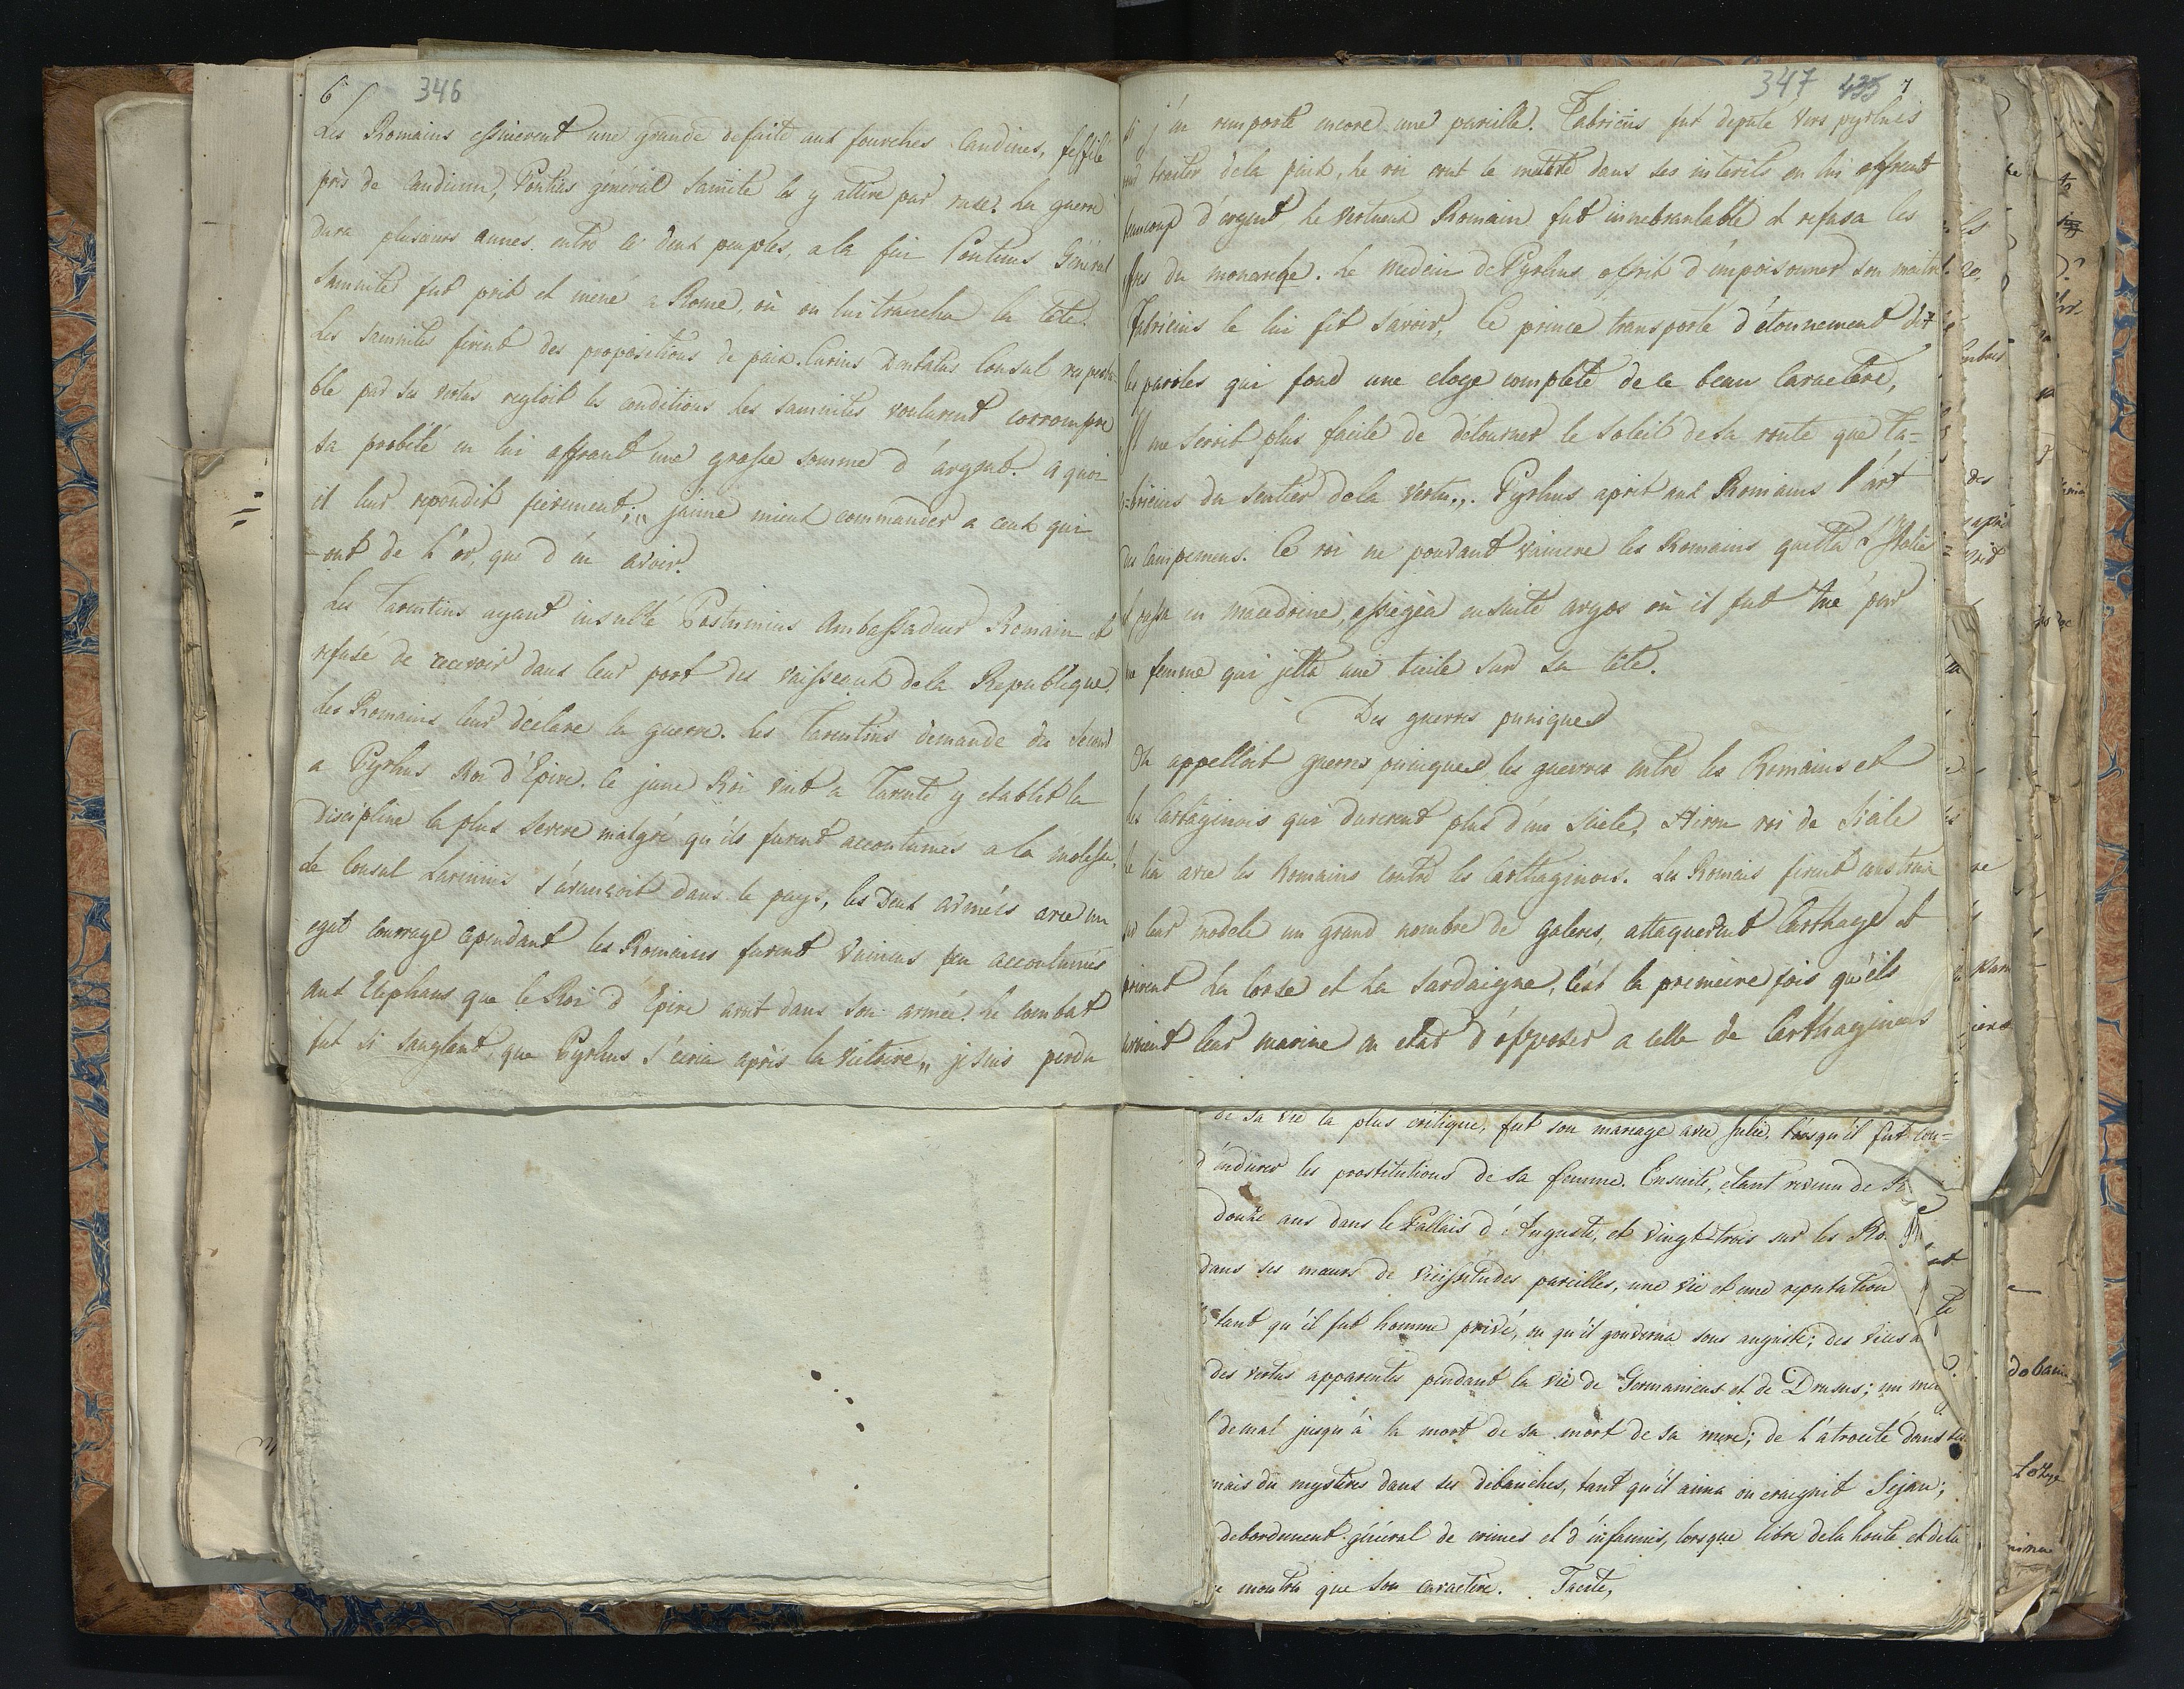 6 346
Les Romains essuierent une grande defaite aux fourches Caudines,
près de Caudium, Pontius général Samite les y attire par ruse. La guerre
dura plusieurs annes entre ce deux peuples, a la fin Pontius Général
Samnite fut prit et mené a Rome, où on lui trancha la tête.
Les samnites firent des propositions de paix. Curius Dentatus Consul respecta-
ble par ses vertus regloit les conditions les samnites voulurent corrompre
sa probité en lui offrant une grasse somme d'argent. a quoi
il leur repondit fièrement; „ jaime mieux commander a ceux qui
ont de l'or, que d'én avoir.
Les Tarentins ayant insulté Postumius Ambassadeur Romain et
refusé de recevoir dans leur port des vaisseaux de la Republique
les Romains leur déclare la guerre. les Tarentins demande du secour
a Pyrhus Roi d'Epire. Ce jeune Roi vint a Tarente y etablit la
discipline la plus severe malgré qu'ils furent accoutumes a la molesse,
Le Consul Lavinius s'avançoit dans le pays, les deux armées avec un
egal courrage cependant les Romains furent vaincus peu accoutumés
aux Elephans que le Roi d'Epire avoit dans son armée. Le combat
fut si sanglant, que Pyrhus s'ecria après la victoire „ je suis perdu
347 435 7
si j'en remporte encore une pareille. Fabricius fut deputé vers pyrhus
pour traiter de la paix, le roi crut le mettre dans ses interêts en lui offrent
beaucoup d'argent, le vertueux Romain fut innebranlable et refusa les
offres du monarque. Le medcin de Pyrhus offrit d'émpoisonner son maitre.
Fabricius le lui fit savoir, Ce prince transporté d'étonnement dit
les paroles qui fond une eloge complete de ce beau Caractère,
Il me seroit plus facile de detourner le soleil de sa route que Fa=
=bricius du sentier de la vertu „. Pyrhus aprit aux Romains l'art
des Campemens. Ce roi ne pouvant vaincre les Romains quitta L'Italie
et passa en macedoine, assiegéa ensuite argos où il fut tué par
une femme qui jetta une tuile sur sa tête.
Des guerres puniques
On appelloit guerres puniques, les guerres entre les Romains et
les Cartaginois qui durerent plus d'un siecle, Hiron roi de Sicile
se lia avec les Romains contre les Carthaginois. Les Romais firent construire
sur leur modele un grand nombre de Galeres, attaquerent Carthage et
prirent La Corse et La Sardaigne, C'est la premiere fois qu'ils
eurent leur marine en etat d'opposer a celle de Carthaginois
de sa vie la plus critique, fut son mariage avec Julie, lorsqu'il fut con=
d'endurer les prostitutions de sa femme. Ensuite, etant revenu de
douze ans dans le Pallais d'Auguste, et vingt-trois sur les
dans ses mœurs de vicissitudes pareilles, une vie et une reputation
tant qu'il fut homme privé, ou qu'il gouverna sous auguste; des vices
des vertus apparentes pendant la vie de Germanicus et de Drusus; un
de mal jusqu'à la mort de sa mort de sa mere; de l'atrocité dans
mais du mystères dans ses débauches, tant qu'il aima ou craignit Sejan;
debordement général de crimes et d'infamies, lorsque libre de la honte et de la
montra que son caractère. Tacite,